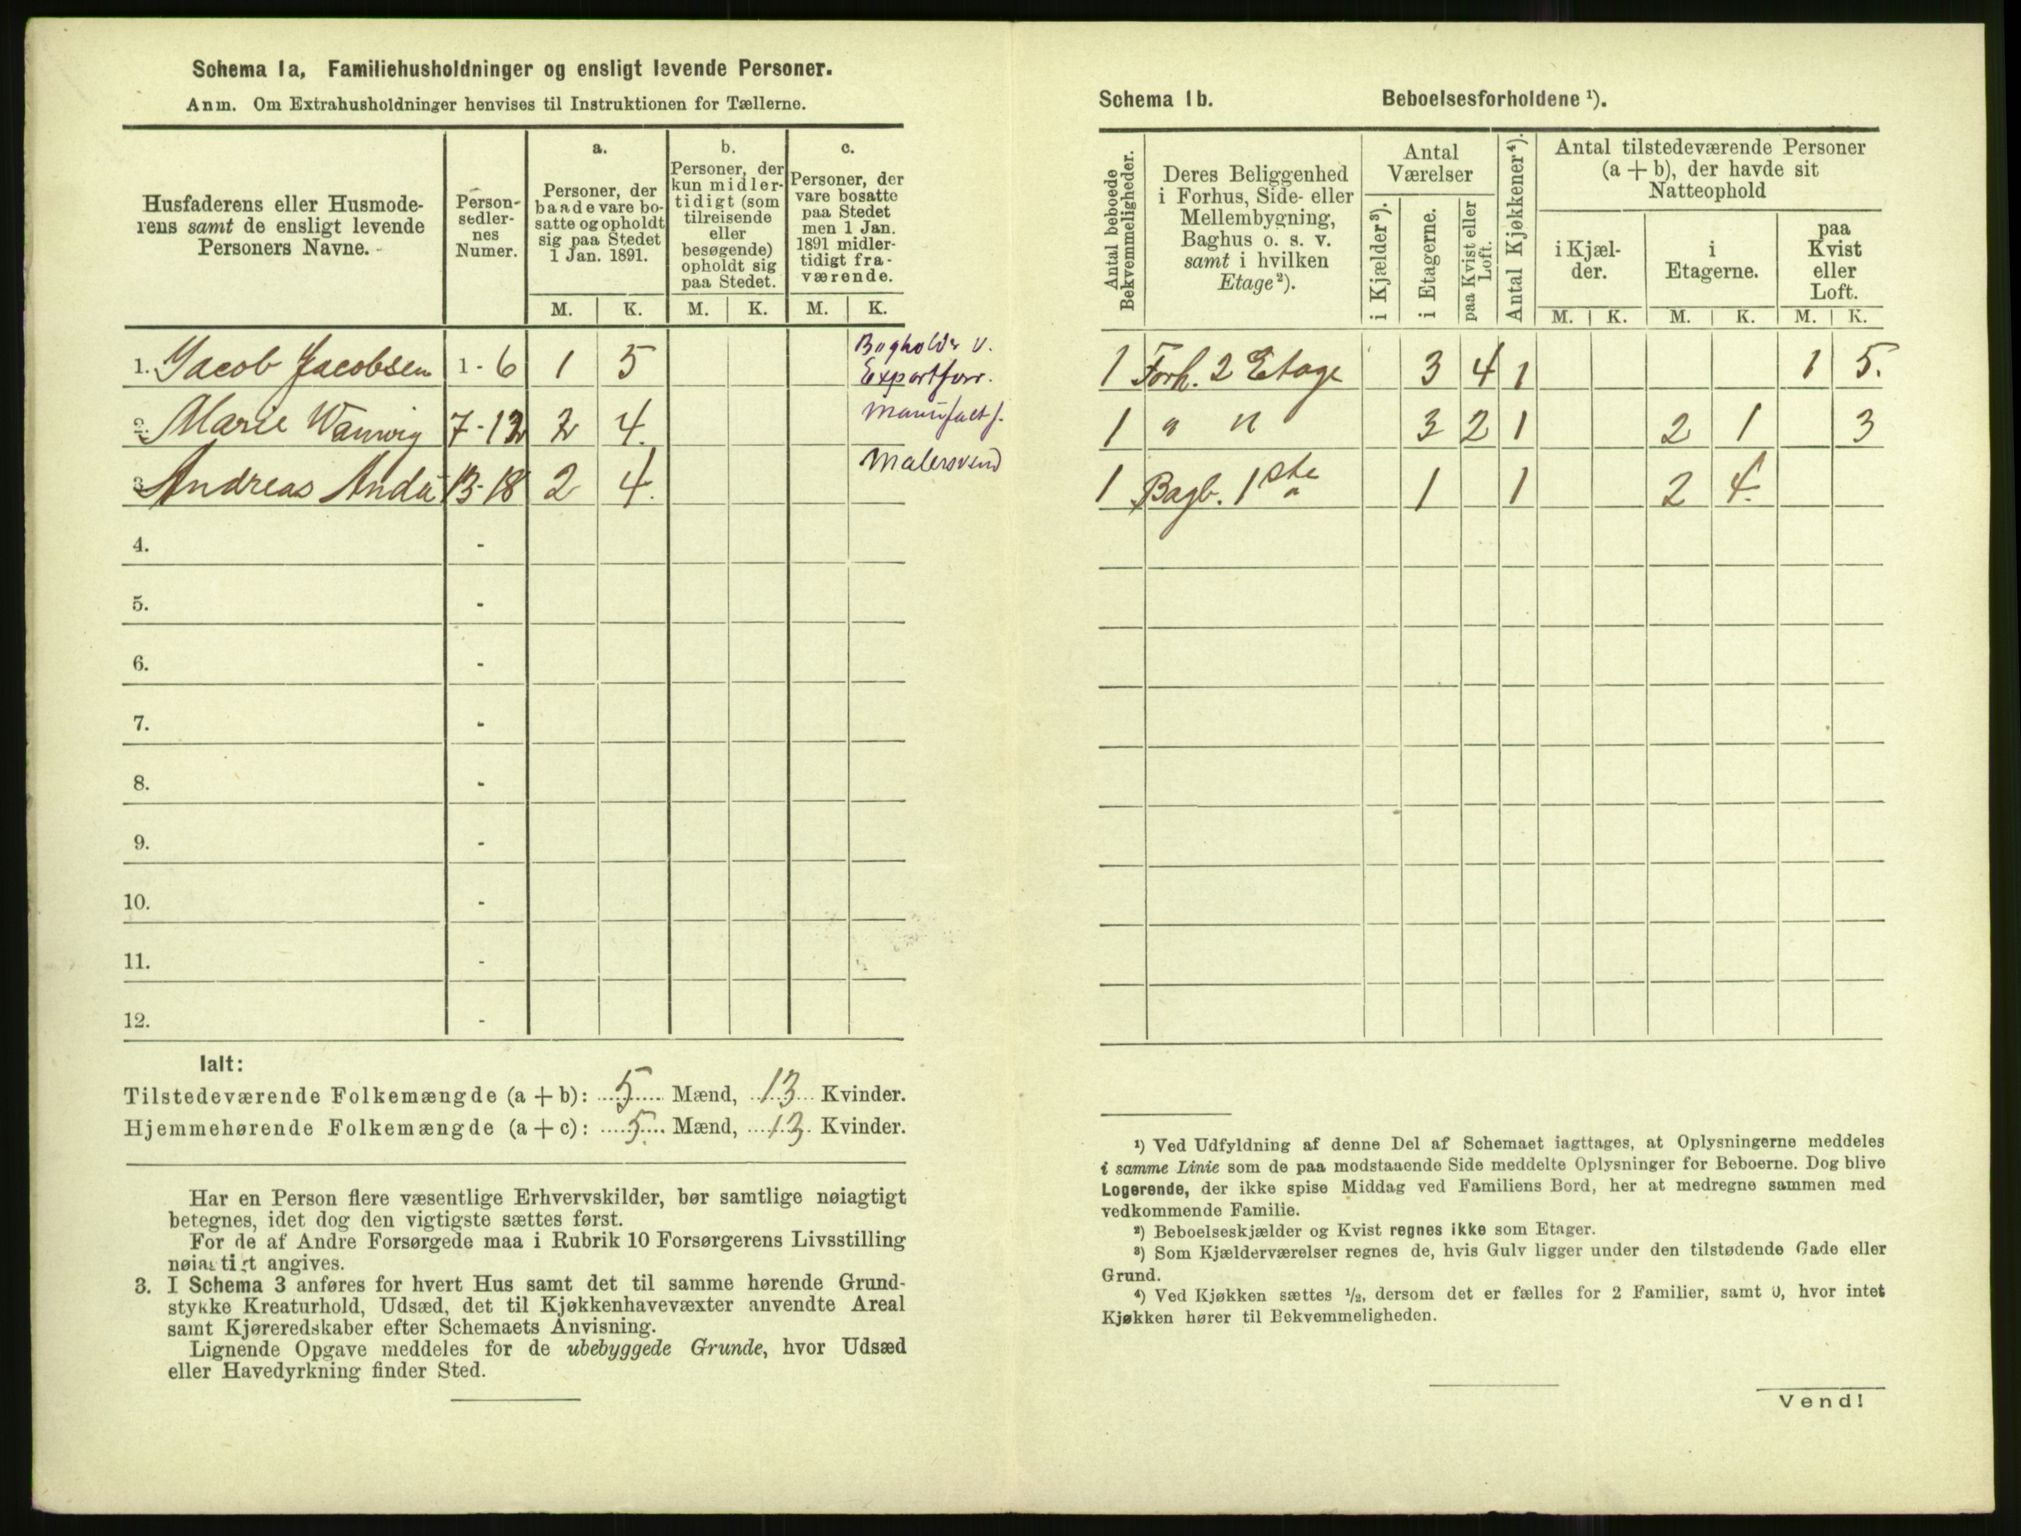 Schema 1a, Familiehusholdninger og ensligt levende Personer.
Anm. Om Extrahusholdninger henvises til Instruktionen for Tællerne.
Husfaderens eller Husmode-
rens samt de ensligt levende
Personers Navne.
Person-
sedler-
nes
Numer.
a.
Personer, der
baade vare bo-
satte og opholdt
sig paa Stedet
1 Jan. 1891.
b.
Personer, der
kun midler-
tidigt (som
tilreisende
eller
besøgende)
opholdt sig
paa Stedet.
c.
Personer, der
vare bosatte
paa Stedet
men 1 Jan.
1891 midler-
tidigt fra-
værende.
M. K. M. K. M. K.
1. Jacob Jacobsen 1 - 6 1 5 Bogholder v.
Exportforr.
2. Marie Wamvig 7 - 12 2 4. Manufact f.
3. Andreas 13 - 18 2 4. Malersvend
4. -
5. -
6. -
7. -
8. -
9. -
10. -
11. -
12. -
Ialt:
Tilstedeværende Folkemængde (a + b): 5 Mænd, 13 Kvinder.
Hjemmehørende Folkemængde (a + c): 5 Mænd, 13 Kvinder.
Har en Person flere væsentlige Erhvervskilder, bør samtlige nøiagtigt
betegnes, idet dog den vigtigste sættes først.
For de af Andre Forsørgede maa i Rubrik 10 Forsørgerens Livsstilling
nøiagtigt angives.
3. I Schema 3 anføres for hvert Hus samt det til samme hørende Grund-
stykke Kreaturhold, Udsæd, det til Kjøkkenhavevæxter anvendte Areal
samt Kjøreredskaber efter Schemaets Anvisning.
Lignende Opgave meddeles for de ubebyggede Grunde, hvor Udsæd
eller Havedyrkning finder Sted.
Schema 1b. Beboelsesforholdene ¹).
Antal beboede
Bekvemmeligheder.
Deres Beliggenhed
i Forhus, Side- eller
Mellembygning,
Baghus o. s. v.
samt i hvilken
Etage ²).
Antal
Værelser
i Kjælder ³).
i Etagerne.
paa Kvist eller
Loft.
Antal Kjøkkener ⁴).
Antal tilstedeværende Personer
(a + b), der havde sit
Natteophold
i Kjæl-
der.
i
Etagerne.
paa
Kvist
eller
Loft.
M. K. M. K. M. K.
1 Forh. 2 Etage 3 4 1 1 5.
1 " " 3 2 1 2 1 3
1 Bagb. 1ste " 1 1 2 4.
¹) Ved Udfyldning af denne Del af Schemaet iagttages, at Oplysningerne meddeles
i samme Linie som de paa modstaaende Side meddelte Oplysninger for Beboerne. Dog blive
Logerende, der ikke spise Middag ved Familiens Bord, her at medregne sammen med
vedkommende Familie.
²) Beboelseskjælder og Kvist regnes ikke som Etager.
³) Som Kjælderværelser regnes de, hvis Gulv ligger under den tilstødende Gade eller
Grund.
⁴) Ved Kjøkken sættes ½, dersom det er fælles for 2 Familier, samt 0, hvor intet
Kjøkken hører til Bekvemmeligheden.
Vend!